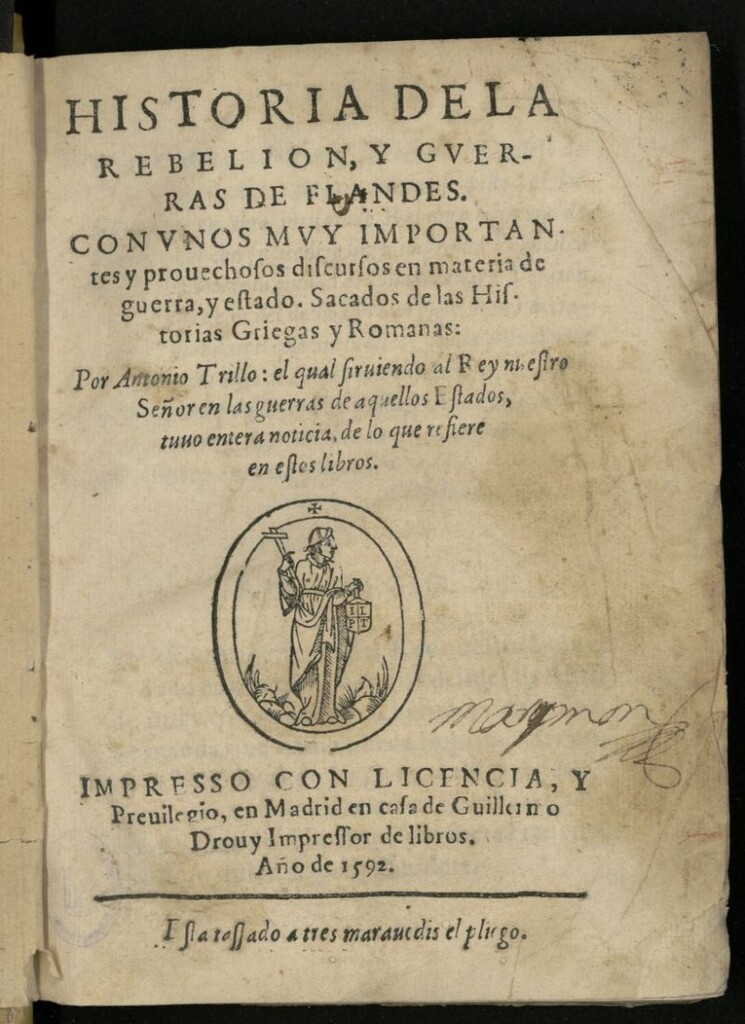 HISTORIA DE LA
REBELION, Y GVER-
RAS DE FLANDES.
CON VNOS MVY IMPORTAN-
tes y prouechoſos diſcurſos en materia de
guerra, y eſtado. Sacados de las Hiſ-
torias Griegas y Romanas:
Por Antonio Trillo: el qual ſiruiendo al Rey nueſtro
Señor en las guerras de aquellos Eſtados,
tuuo entera noticia, de lo que refiere
en eſtos libros.
I L
P T
IMPRESSO CON LICENCIA, Y
Preuilegio, en Madrid en caſa de Guillermo
Drouy Impreſſor de libros.
Año de 1592.
Eſta taſſado a tres marauedis el pliego.